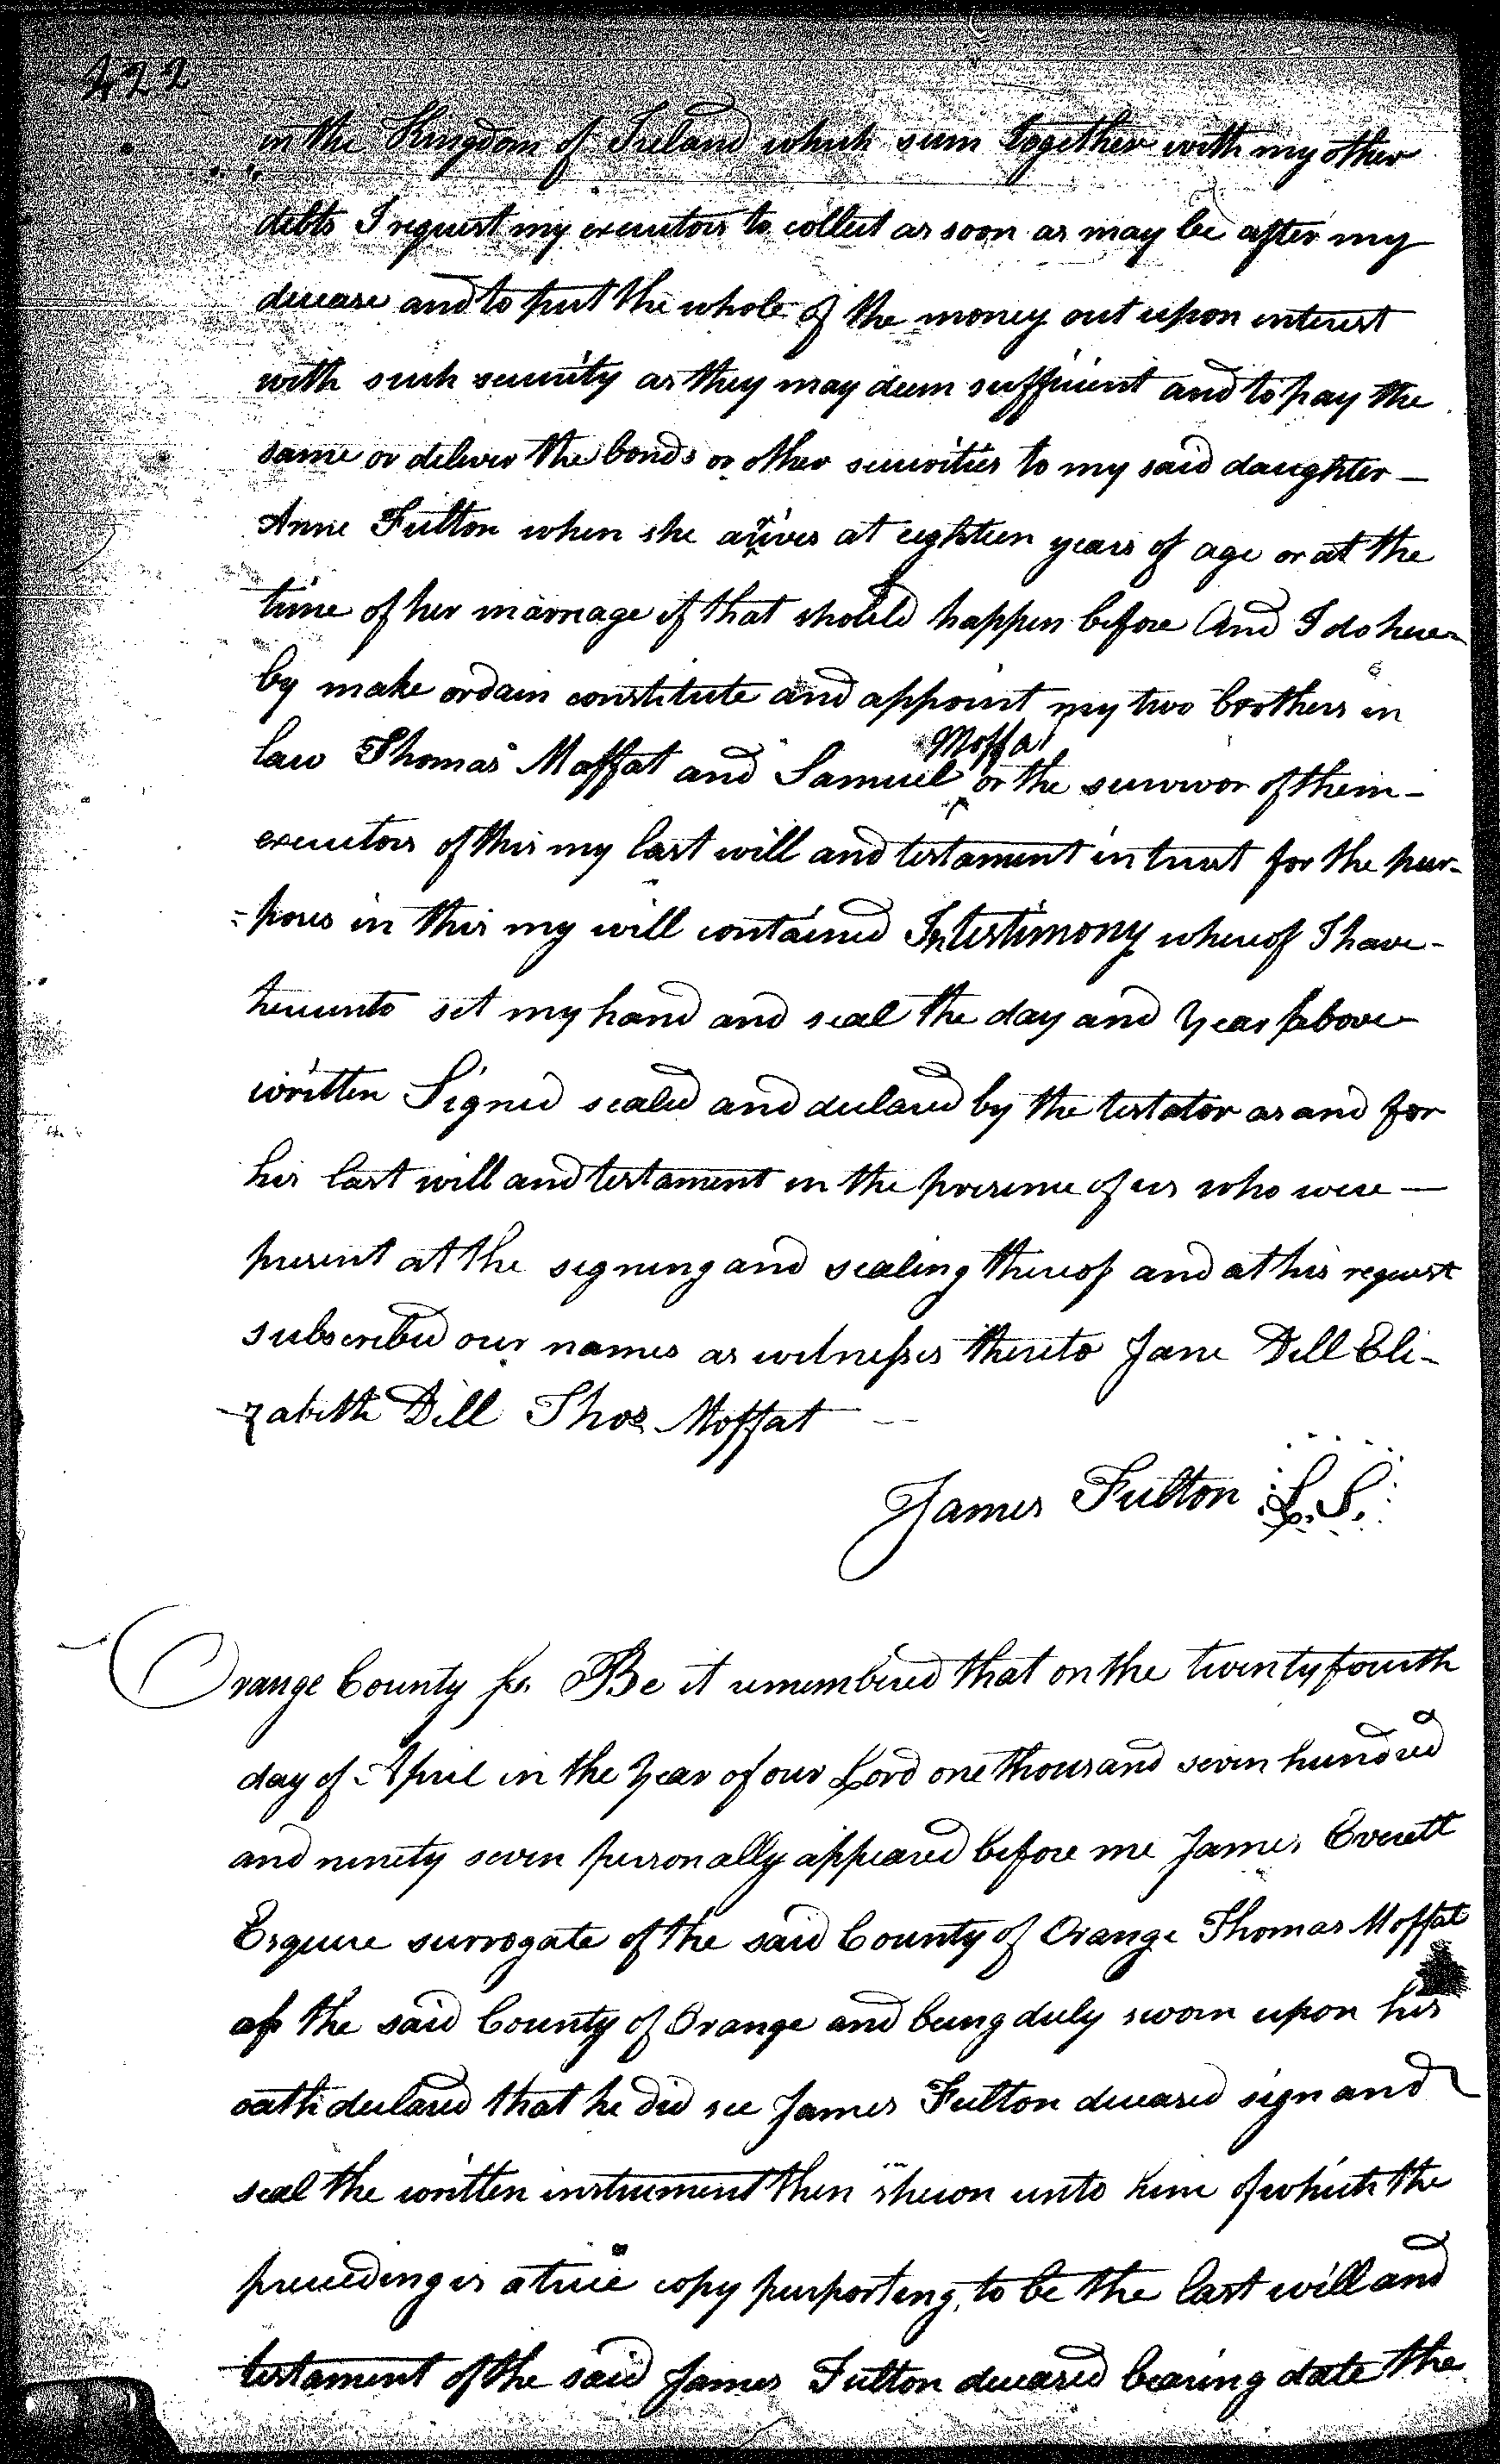 422
in the Kingdom of Ireland which sum together with my other
debts I request my executors to collect as soon as may be after my
decease and to put the whole of the money out upon interest
with such security as they may deem sufficient and to pay the
same or deliver the bonds or other securities to my said daughter –
Anne Fulton when she arives at eighteen years of age or at the
time of her marriage if that should happen before And I do here-
by make ordain constitute and appoint my two brothers in
Moffat
law Thomas Moffat and Samuel ^ or the survivor of them –
executors of this my last will and testament in trust for the pur-
=poses in this my will contained In testimony whereof I have –
hereunto set my hand and seal the day and Year above
written Signed sealed and declared by the testator as and for
his last will and testament in the presence of us who were —
present at the signing and sealing thereof and at his request
subscribed our names as witnesses thereto Jane Dill Eli-
-zabeth Dill Thos. Moffat —
James Fulton L.S.
Orange County ss. Be it remembered that on the twenty fourth
day of April in the Year of our Lord one thousand seven hundred
and ninety seven personally appeared before me James Everett
Esquire surrogate of the said County of Orange Thomas Moffat
of the said County of Orange and being duly sworn upon his
oath declared that he did see James Fulton deceased sign and
seal the written instrument then shewn unto him of which the
preceding is a true copy purporting to be the last will and
testament of the said James Fulton deceased bearing date the